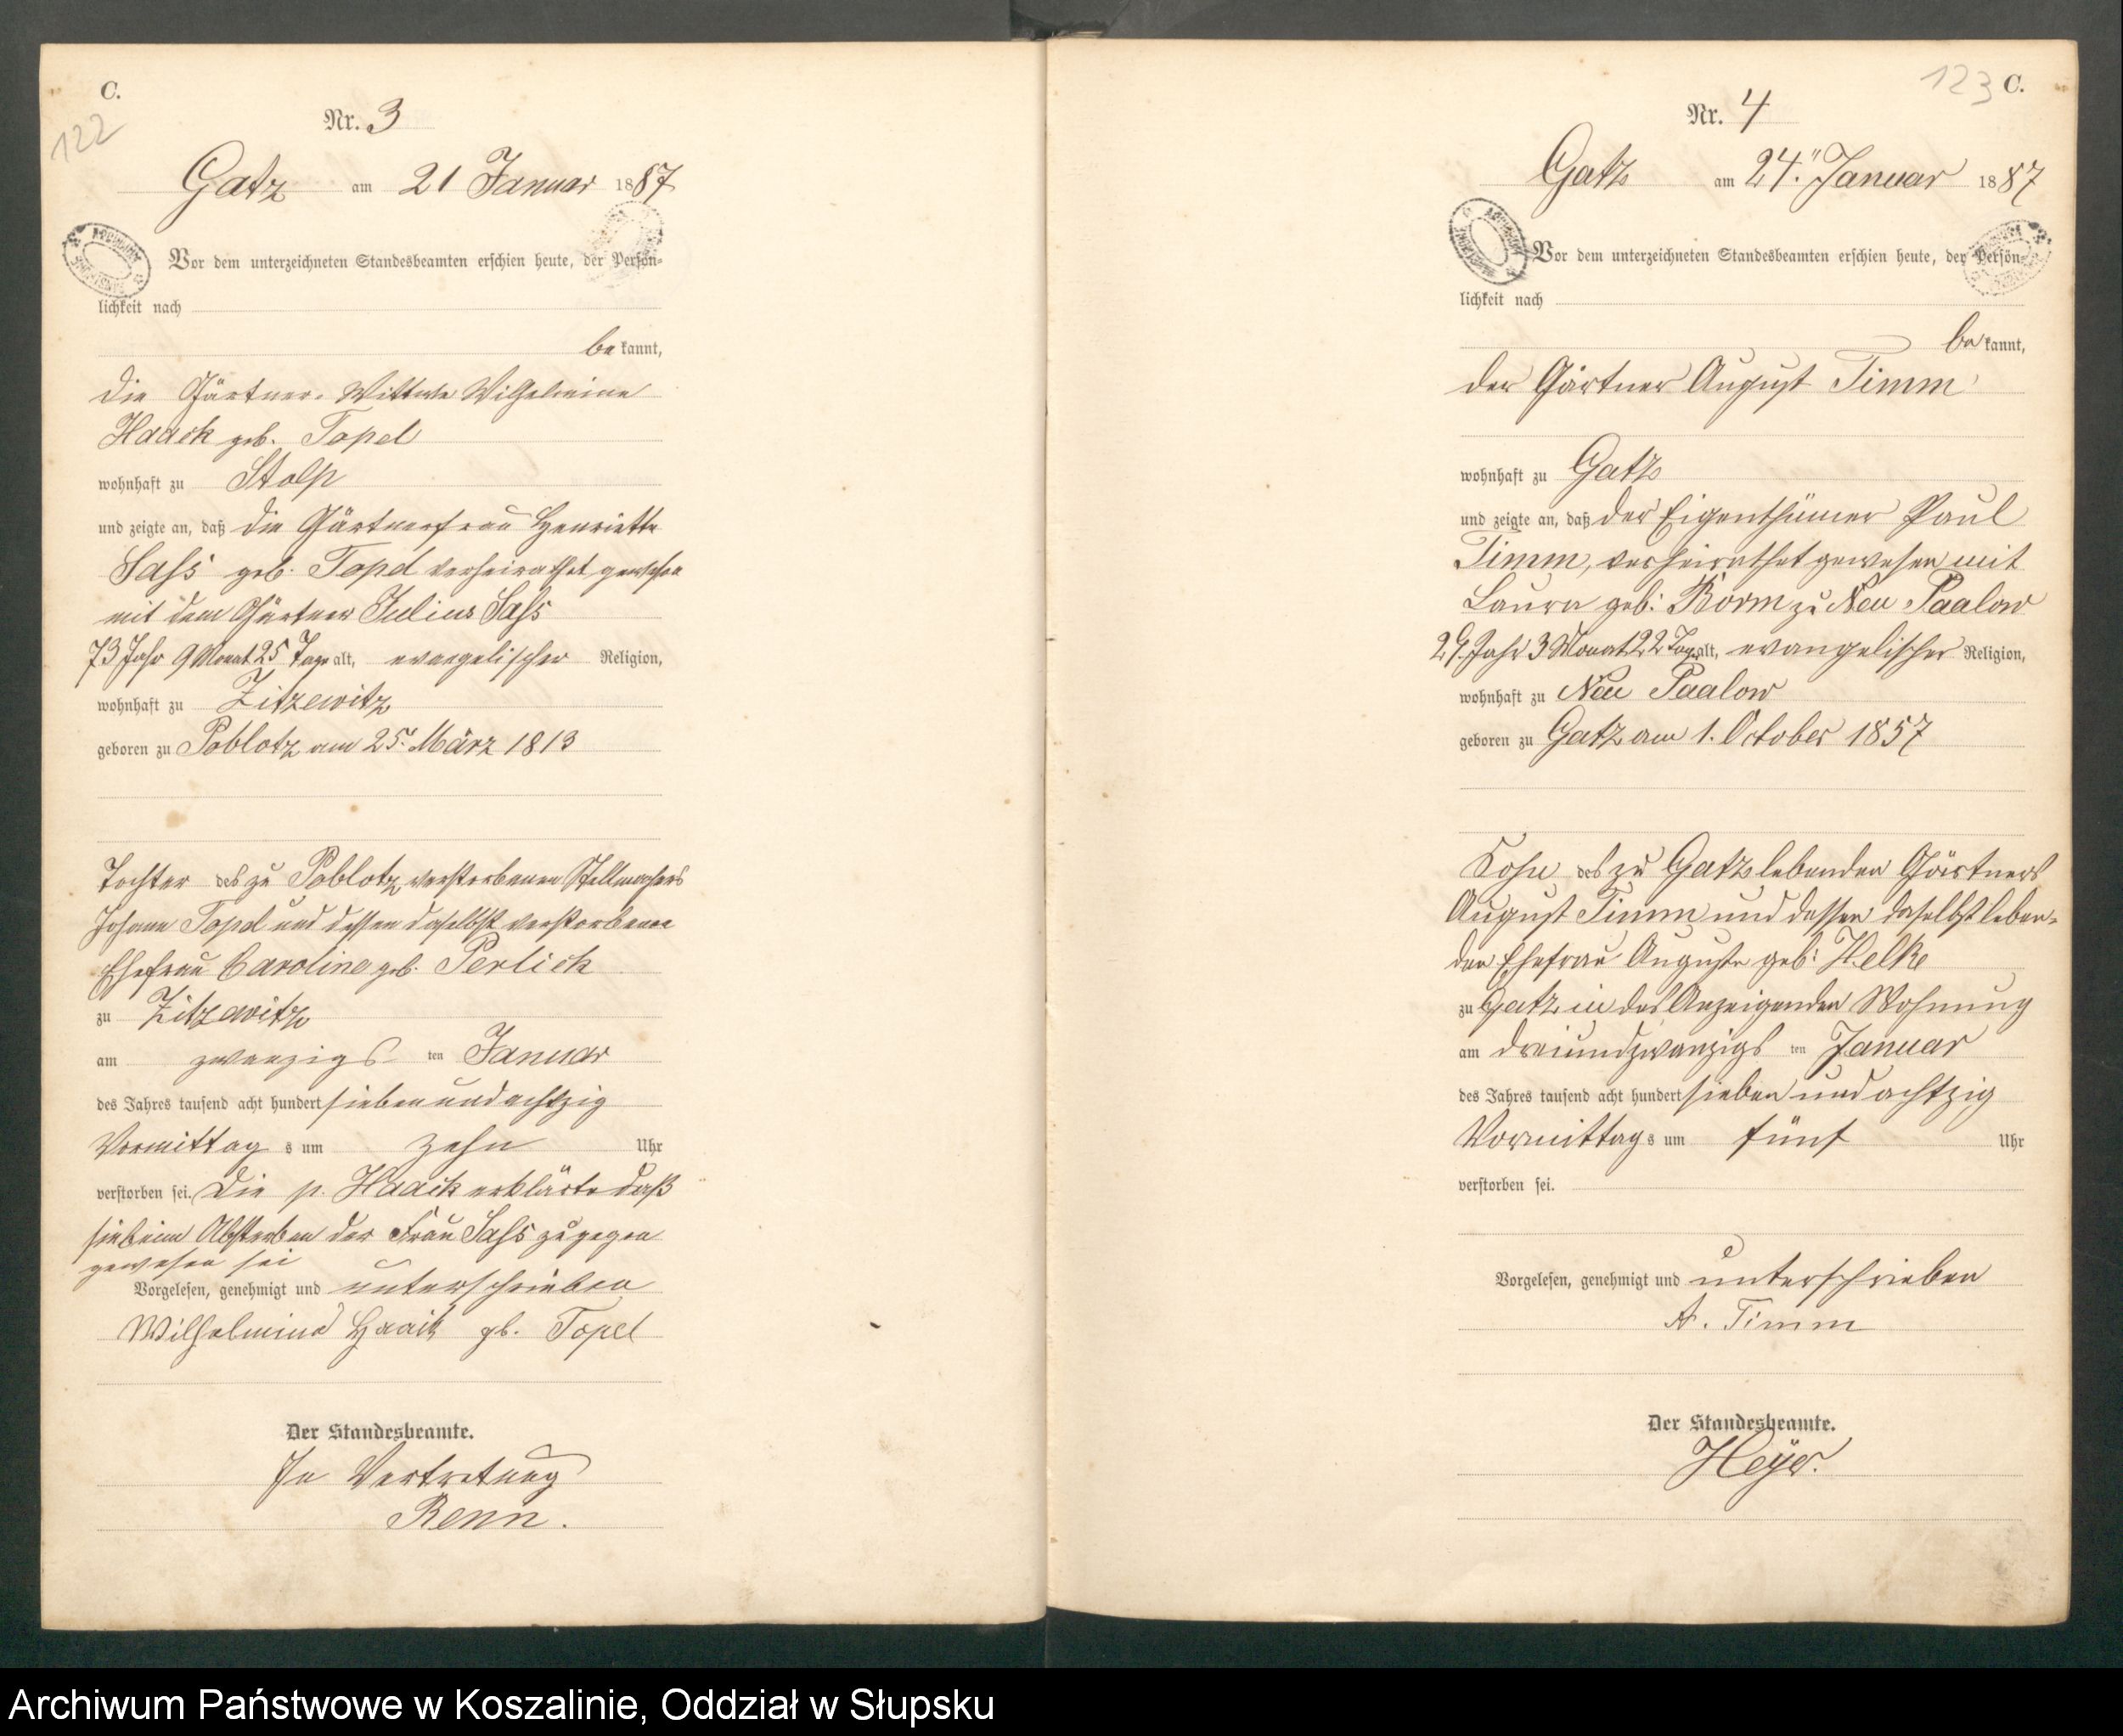 C.
122
Nr. 3
Gatz am 21 Januar 1887
Vor dem unterzeichneten Standesbeamten erschien heute, der Persön-
lichkeit nach
be kannt,
die Gärtner-Wittwe Wilhelmine
Haack geb. Topel
wohnhaft zu Stolp
und zeigte an, daß die Gärtnerfrau Henriette
Sass geb. Topel verheirathet gewesen
mit dem Gärtner Julius Sass
73 Jahr 9 Monat 25 Tage alt, evangelischer Religion,
wohnhaft zu Zitzewitz
geboren zu Poblotz am 25. März 1813
Tochter des zu Poblotz verstorbenen Stellmachers
Johann Topel und dessen daselbst verstorbene
Ehefrau Caroline geb. Perlick
zu Zitzewitz
am zwanzigs ten Januar
des Jahres tausend acht hundert siebenundachtzig
Vormittag s um zehn Uhr
verstorben sei. Die p. Haack erklärte daß
sie beim Absterben der Frau Sass zugegen
gewesen sei
Vorgelesen, genehmigt und unterschrieben
Wilhelmine Haack gb. Topel
Der Standesbeamte.
In Vertretung
Renn.
123 C.
Nr. 4
Gatz am 24. Januar 1887
Vor dem unterzeichneten Standesbeamten erschien heute, der Persön-
lichkeit nach
be kannt,
der Gärtner August Timm
wohnhaft zu Gatz
und zeigte an, daß der Eigenthümer Paul
Timm, verheirathet gewesen mit
Laura geb: Borm zu Neu Paalow
29. Jahr 3 Monat 22 Tag alt, evangelischer Religion,
wohnhaft zu Neu Paalow
geboren zu Gatz am 1. October 1857
Sohn des zu Gatz lebenden Gärtners
August Timm und dessen daselbst leben-
den Ehefrau Auguste geb: Helke
zu Gatz in des Anzeigenden Wohnung
am dreiundzwanzigs ten Januar
des Jahres tausend acht hundert sieben und achtzig
Vormittag s um fünf Uhr
verstorben sei.
Vorgelesen, genehmigt und unterschrieben
A. Timm
Der Standesbeamte.
Heyer.
Archiwum Państwowe w Koszalinie, Oddział w Słupsku